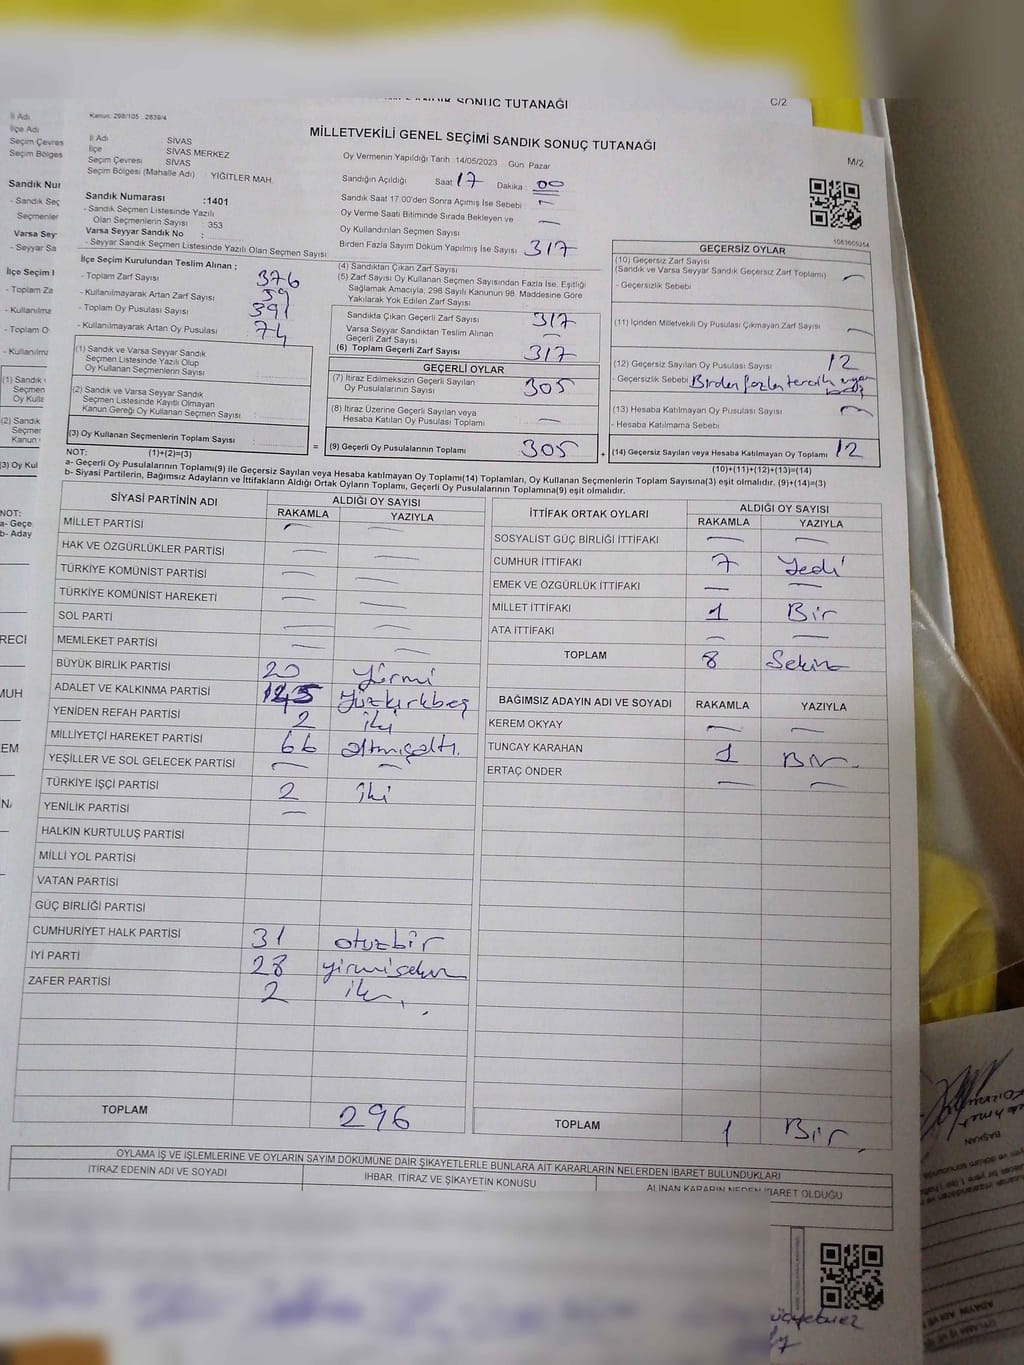 SONUÇ TUTANAĞI
C/2
Kanun, 298/105 , 2839/4
MİLLETVEKİLİ GENEL SEÇİMİ SANDIK SONUÇ TUTANAĞI
M/2
İl Adı : SİVAS
İlçe Adı : SİVAS MERKEZ
Seçim Çevresi : SİVAS
Seçim Bölgesi (Mahalle Adı) YİĞİTLER MAH.
Oy Vermenin Yapıldığı Tarih :14/05/2023 Gün: Pazar
Sandığın Açıldığı Saat: 17 Dakika: 00
Sandık Saat 17:00'den Sonra Açımış İse Sebebi : —
Oy Verme Saati Bitiminde Sırada Bekleyen ve
Oy Kullandırılan Seçmen Sayısı —
Birden Fazla Sayım Döküm Yapılmış İse Sayısı : 317
Sandık Numarası :1401
- Sandık Seçmen Listesinde Yazılı
Olan Seçmenlerin Sayısı : 353
Varsa Seyyar Sandık No :
- Seyyar Sandık Seçmen Listesinde Yazılı Olan Seçmen Sayısı
İlçe Seçim Kurulundan Teslim Alınan ;
- Toplam Zarf Sayısı : 376
- Kullanılmayarak Artan Zarf Sayısı : 59
- Toplam Oy Pusulası Sayısı : 391
- Kullanılmayarak Artan Oy Pusulası : 74
(1) Sandık ve Varsa Seyyar Sandık
Seçmen Listesinde Yazılı Olup
Oy Kullanan Seçmenlerin Sayısı :
(2) Sandık ve Varsa Seyyar Sandık
Seçmen Listesinde Kayıtlı Olmayan
Kanun Gereği Oy Kullanan Seçmen Sayısı :
(3) Oy Kullanan Seçmenlerin Toplam Sayısı :
(1)+(2)=(3)
(4) Sandıktan Çıkan Zarf Sayısı
(5) Zarf Sayısı Oy Kullanan Seçmen Sayısından Fazla İse, Eşitliği
Sağlamak Amacıyla, 298 Sayılı Kanunun 98. Maddesine Göre
Yakılarak Yok Edilen Zarf Sayısı
Sandıkta Çıkan Geçerli Zarf Sayısı : 317
Varsa Seyyar Sandıktan Teslim Alınan
Geçerli Zarf Sayısı : —
(6) Toplam Geçerli Zarf Sayısı : 317
GEÇERLİ OYLAR
(7) İtiraz Edilmeksizin Geçerli Sayılan
Oy Pusulalarının Sayısı : 305
(8) İtiraz Üzerine Geçerli Sayılan veya
Hesaba Katılan Oy Pusulaları Toplamı : —
= (9) Geçerli Oy Pusulalarının Toplamı : 305 +
1081665254
GEÇERSİZ OYLAR
(10) Geçersiz Zarf Sayısı
(Sandık ve Varsa Seyyar Sandık Geçersiz Zarf Toplamı) : —
- Geçersizlik Sebebi :
(11) İçinden Milletvekili Oy Pusulası Çıkmayan Zarf Sayısı : —
(12) Geçersiz Sayılan Oy Pusulası Sayısı : 12
- Geçersizlik Sebebi : Birden fazla tercih
(13) Hesaba Katılmayan Oy Pusulası Sayısı : —
- Hesaba Katılmama Sebebi :
(14) Geçersiz Sayılan veya Hesaba Katılmayan Oy Toplamı : 12
(10)+(11)+(12)+(13)=(14)
NOT:
a- Geçerli Oy Pusulalarının Toplamı(9) ile Geçersiz Sayılan veya Hesaba katılmayan Oy Toplamı(14) Toplamları, Oy Kullanan Seçmenlerin Toplam Sayısına(3) eşit olmalıdır. (9)+(14)=(3)
b- Siyasi Partilerin, Bağımsız Adayların ve İttifakların Aldığı Ortak Oyların Toplamı, Geçerli Oy Pusulalarının Toplamına(9) eşit olmalıdır.
SİYASİ PARTİNİN ADI ALDIĞI OY SAYISI
RAKAMLA YAZIYLA
MİLLET PARTİSİ — —
HAK VE ÖZGÜRLÜKLER PARTİSİ — —
TÜRKİYE KOMÜNİST PARTİSİ — —
TÜRKİYE KOMÜNİST HAREKETİ — —
SOL PARTİ — —
MEMLEKET PARTİSİ — —
BÜYÜK BİRLİK PARTİSİ 20 yirmi
ADALET VE KALKINMA PARTİSİ 145 yüzkırkbeş
YENİDEN REFAH PARTİSİ 2 iki
MİLLİYETÇİ HAREKET PARTİSİ 66 altmışaltı
YEŞİLLER VE SOL GELECEK PARTİSİ — —
TÜRKİYE İŞÇİ PARTİSİ 2 iki
YENİLİK PARTİSİ —
HALKIN KURTULUŞ PARTİSİ
MİLLİ YOL PARTİSİ
VATAN PARTİSİ
GÜÇ BİRLİĞİ PARTİSİ
CUMHURİYET HALK PARTİSİ 31 otuzbir
İYİ PARTİ 28 yirmisekiz
ZAFER PARTİSİ 2 iki
TOPLAM 296
İTTİFAK ORTAK OYLARI ALDIĞI OY SAYISI
RAKAMLA YAZIYLA
SOSYALİST GÜÇ BİRLİĞİ İTTİFAKI — —
CUMHUR İTTİFAKI 7 Yedi
EMEK VE ÖZGÜRLÜK İTTİFAKI — —
MİLLET İTTİFAKI 1 Bir
ATA İTTİFAKI — —
TOPLAM 8 Sekiz
BAĞIMSIZ ADAYIN ADI VE SOYADI RAKAMLA YAZIYLA
KEREM OKYAY — —
TUNCAY KARAHAN 1 Bir
ERTAÇ ÖNDER — —
TOPLAM 1 Bir
OYLAMA İŞ VE İŞLEMLERİNE VE OYLARIN SAYIM DÖKÜMÜNE DAİR ŞİKAYETLERLE BUNLARA AİT KARARLARIN NELERDEN İBARET BULUNDUKLARI
İTİRAZ EDENİN ADI VE SOYADI İHBAR, İTİRAZ VE ŞİKAYETİN KONUSU ALINAN KARARIN NEDEN İBARET OLDUĞU
BAŞKAN